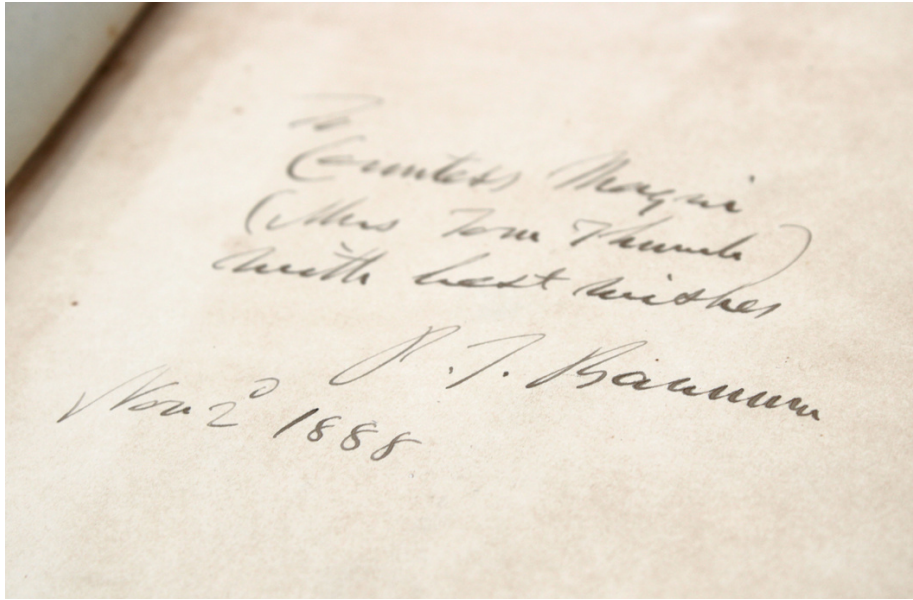 To
Countess Magri
(Mrs Tom Thumb)
with best wishes
P. T. Barnum
Nov 2d 1888